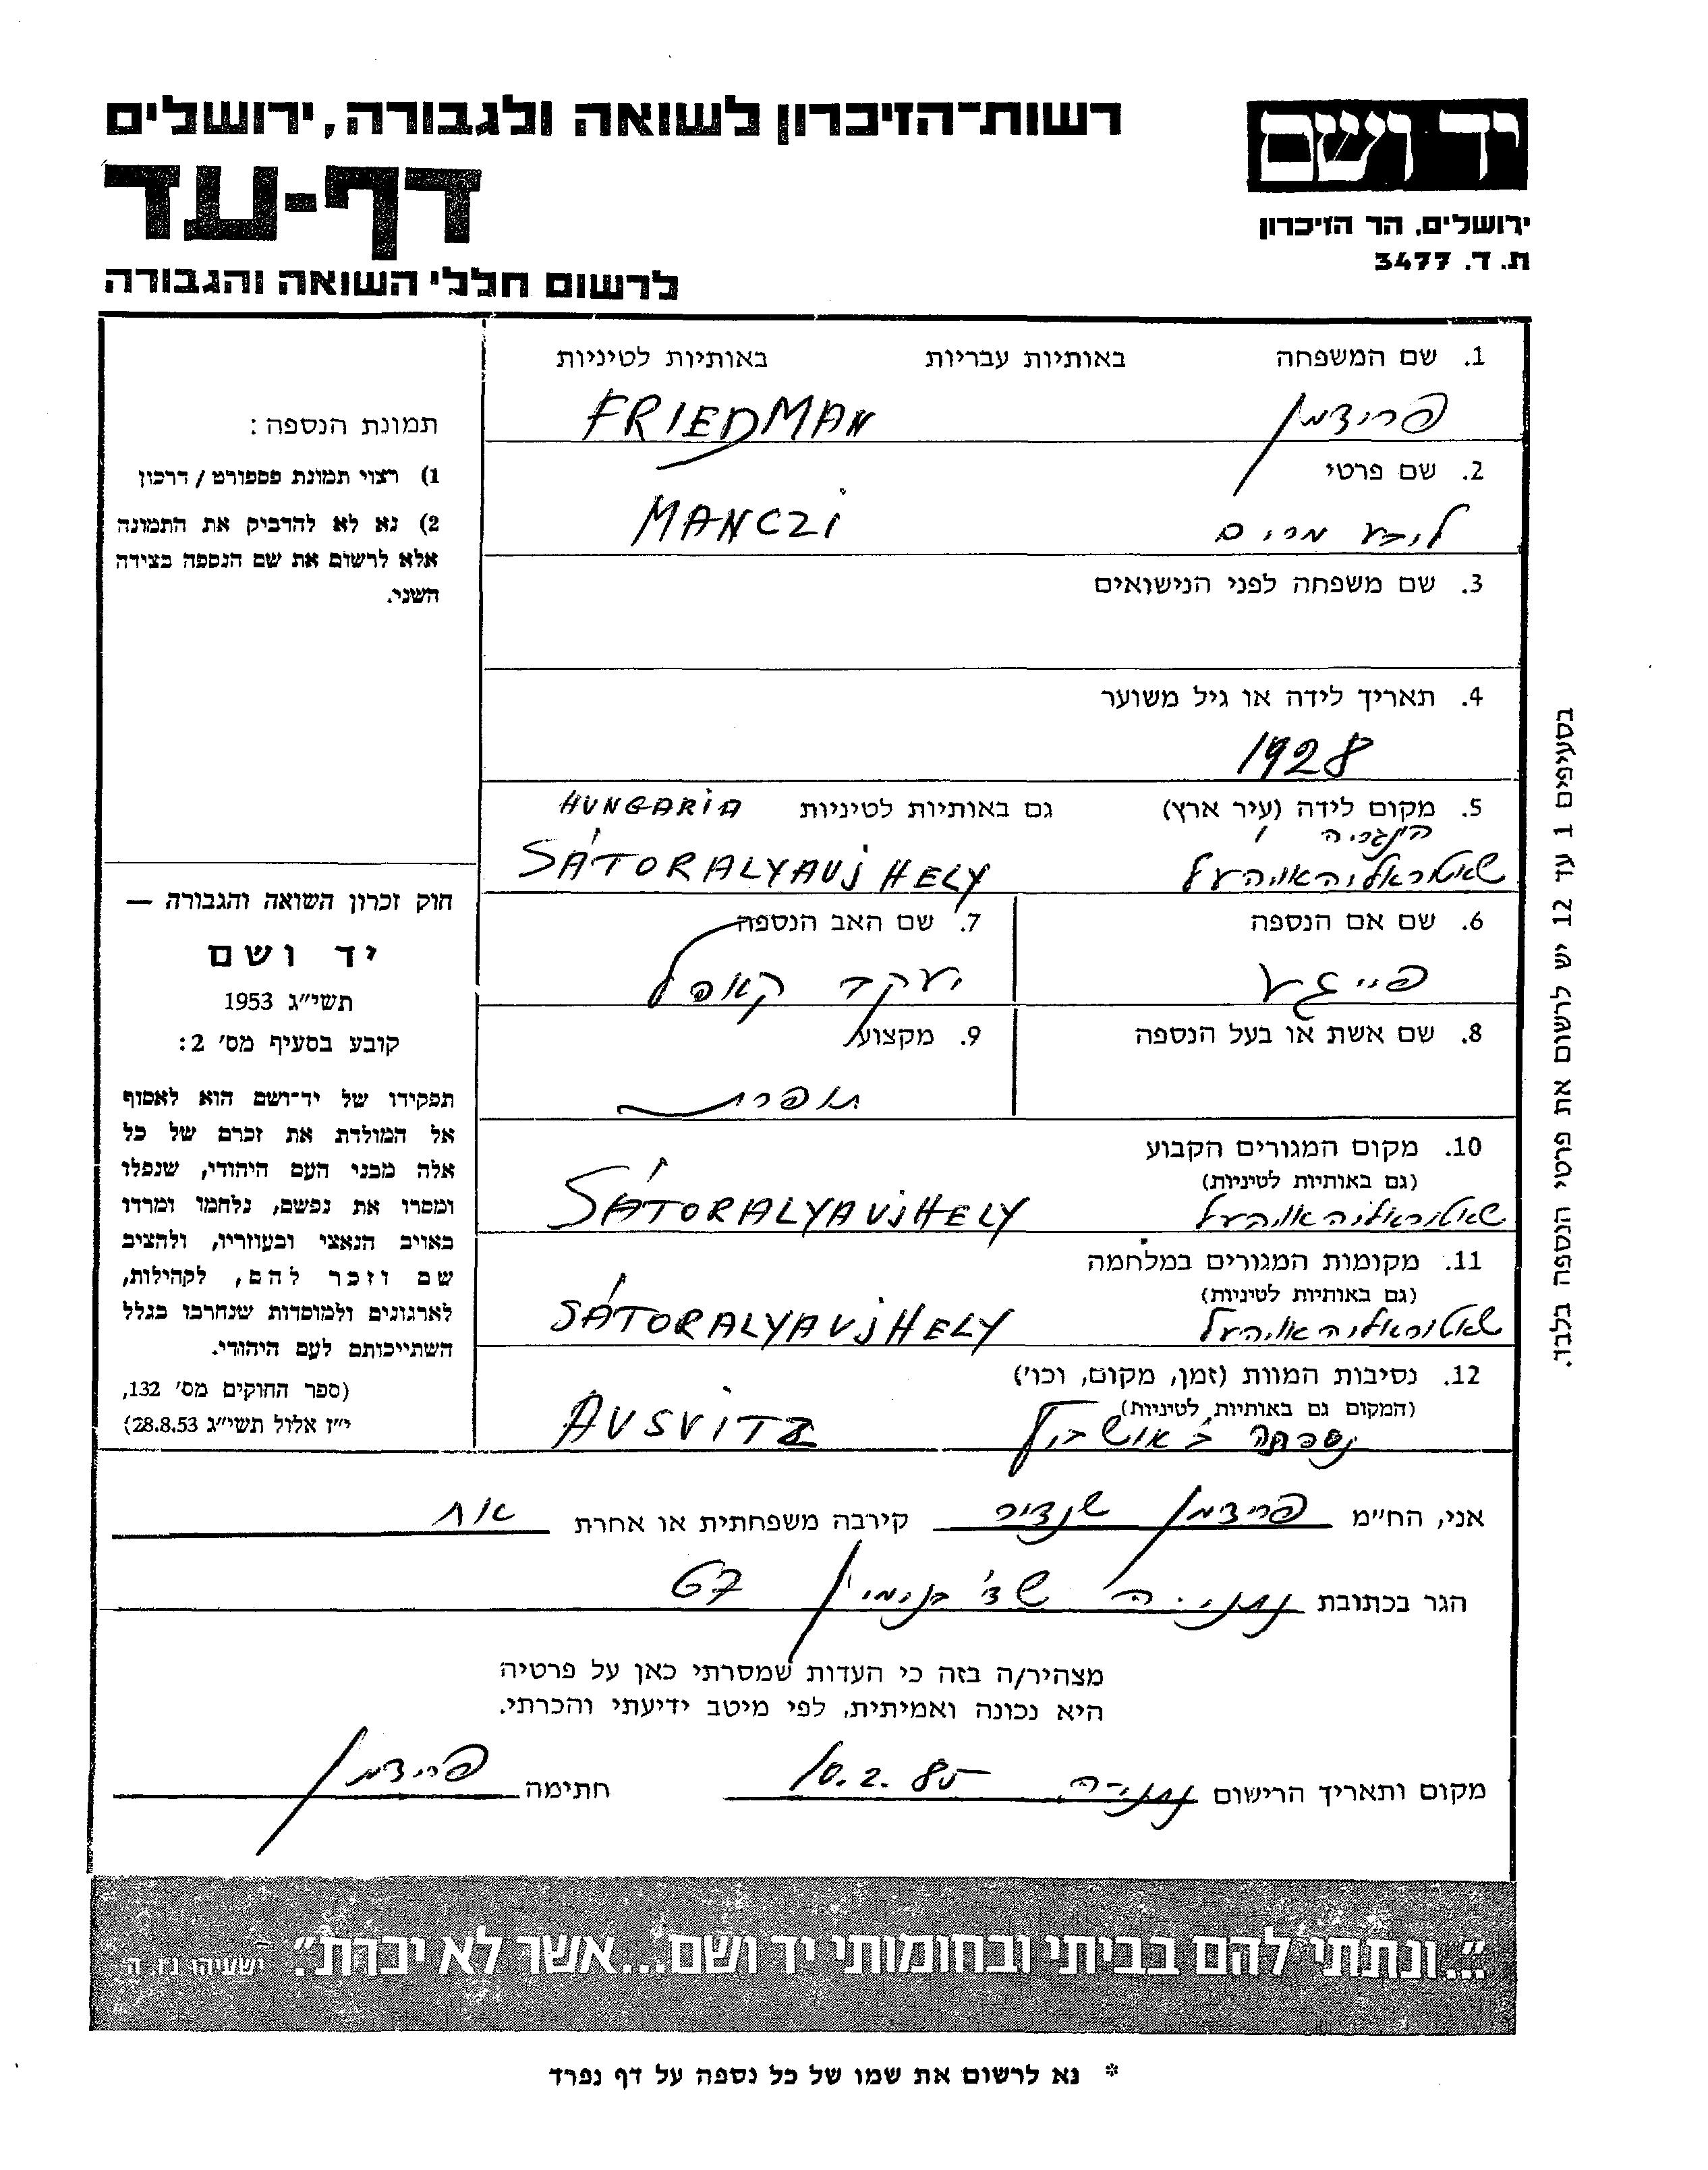 רשות־הזיכרון לשואה ולגבורה, ירושלים
דף-עד
לרשום חללי השואה והגבורה
יד ושם
ירושלים, הר הזיכרון
ת. ד. 3477
1. שם המשפחה באותיות עבריות באותיות לטיניות
פרידמן FRIEDMAN
2. שם פרטי
ליבע מרים MANCZI
3. שם משפחה לפני הנישואים
4. תאריך לידה או גיל משוער
1928
5. מקום לידה (עיר ארץ) גם באותיות לטיניות HUNGARIA
הונגריה
SÁTORALYAUJHELY
6. שם אם הנספה
פייגע
7. שם האב הנספה
יעקב קאפל
8. שם אשת או בעל הנספה
9. מקצוע
תופרת
10. מקום המגורים הקבוע
(גם באותיות לטיניות)
SÁTORALYAUJHELY
11. מקומות המגורים במלחמה
(גם באותיות לטיניות)
SÁTORALYAUJHELY
12. נסיבות המוות (זמן, מקום, וכו')
(המקום גם באותיות לטיניות)
נספתה באושביץ AUSVITZ
תמונת הנספה:
1) רצוי תמונת פספורט / דרכון
2) נא לא להדביק את התמונה
אלא לרשום את שם הנספה בצידה
השני.
חוק זכרון השואה והגבורה —
יד ושם
תשי״ג 1953
קובע בסעיף מס׳ 2:
תפקידו של יד־ושם הוא לאסוף
אל המולדת את זכרם של כל
אלה מבני העם היהודי, שנפלו
ומסרו את נפשם, נלחמו ומרדו
באויב הנאצי ובעוזריו, ולהציב
שם וזכר להם, לקהילות,
לארגונים ולמוסדות שנחרבו בגלל
השתייכותם לעם היהודי.
(ספר החוקים מס׳ 132,
י״ז אלול תשי״ג 28.8.53)
בסעיפים 1 עד 12 יש לרשום את פרטי הנספה בלבד.
אני, הח״מ פרידמן קירבה משפחתית או אחרת אח
הגר בכתובת נתניה שד׳ בנימין 67
מצהיר/ה בזה כי העדות שמסרתי כאן על פרטיה
היא נכונה ואמיתית, לפי מיטב ידיעתי והכרתי.
מקום ותאריך הרישום נתניה 10.2.85 חתימה פרידמן
״...ונתתי להם בביתי ובחומותי יד ושם...אשר לא יכרת״. ישעיהו נו, ה
* נא לרשום את שמו של כל נספה על דף נפרד